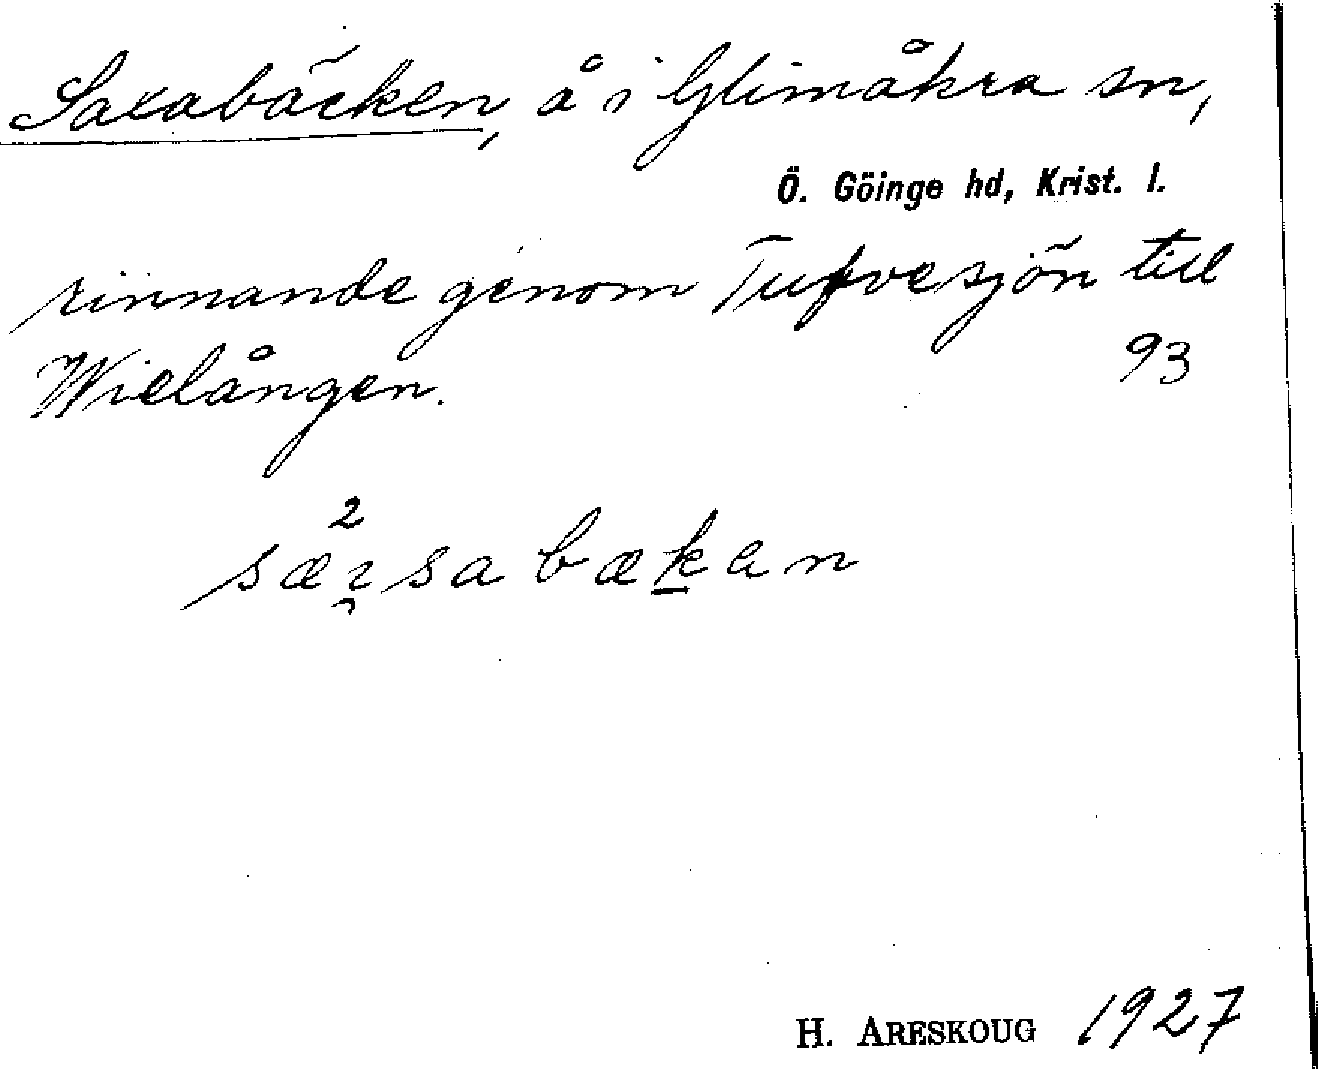 Saxabäcken, å i Glimåkra sn,
Ö. Göinge hd, Krist. l.
rinnande genom Tufvesjön till
Wielången. 93
2
H. ARESKOUG 1927